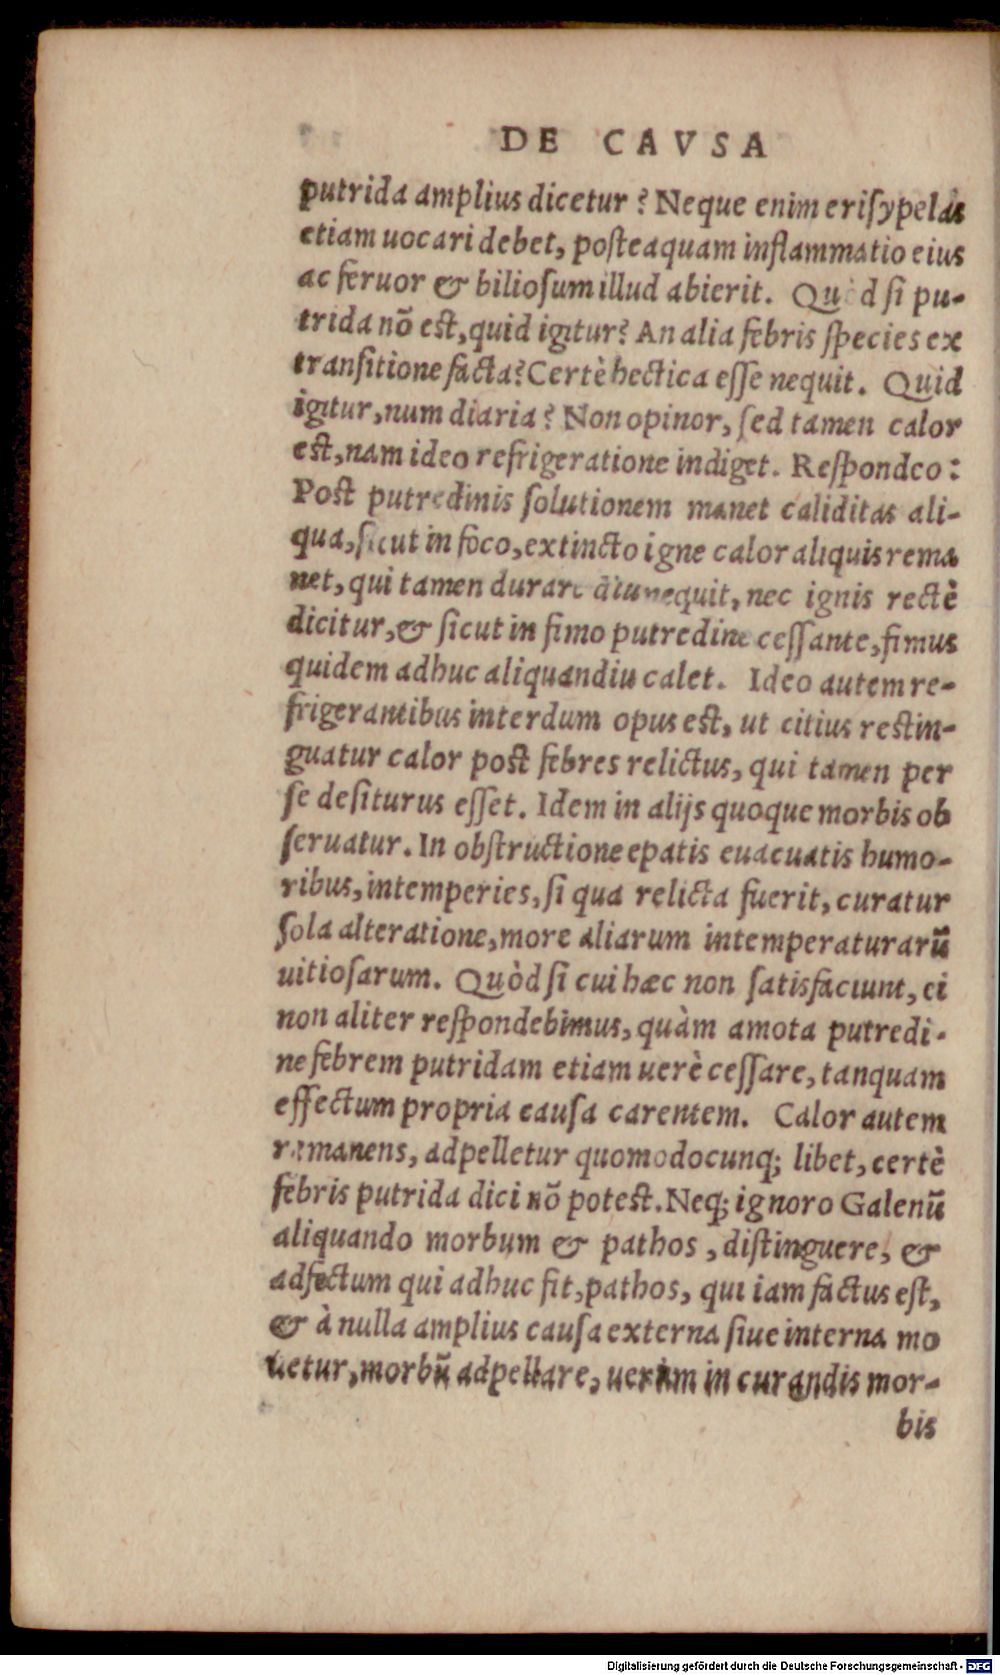 DE CAVSA
putrida amplius dicetur? Neque enim eriſypelas
etiam uocari debet, poſteaquam inflammatio eius
ac feruor & bilioſum illud abierit. Quòd ſi pu-
trida nō est, quid igitur? An alia febris ſpecies ex
tranſitione facta? Certè hectica eſſe nequit. Quid
igitur, num diaria? Non opinor, ſed tamen calor
est, nam ideo refrigeratione indiget. Reſpondeo:
Post putredinis ſolutionem manet caliditas ali-
qua, ſicut in foco, extincto igne calor aliquis rema
net, qui tamen durare diu nequit, nec ignis rectè
dicitur, & ſicut in fimo putredine ceſſante, fimus
quidem adhuc aliquandiu calet. Ideo autem re-
frigerantibus interdum opus est, ut citius restin-
guatur calor post febres relictus, qui tamen per
ſe deſiturus eſſet. Idem in alijs quoque morbis ob
ſeruatur. In obſtructione epatis euacuatis humo-
ribus, intemperies, ſi qua relicta fuerit, curatur
ſola alteratione, more aliarum intemperaturarū
uitioſarum. Quòd ſi cui hæc non ſatisfaciunt, ei
non aliter reſpondebimus, quàm amota putredi-
ne febrem putridam etiam uerè ceſſare, tanquam
effectum propria cauſa carentem. Calor autem
remanens, adpelletur quomodocunq; libet, certè
febris putrida dici nō potest. Neq; ignoro Galenū
aliquando morbum & pathos, diſtinguere, &
adfectum qui adhuc fit, pathos, qui iam factus eſt,
& à nulla amplius cauſa externa ſiue interna mo
uetur, morbū adpellare, uerùm in curandis mor-
bis
Digitalisierung gefördert durch die Deutsche Forschungsgemeinschaft - DFG